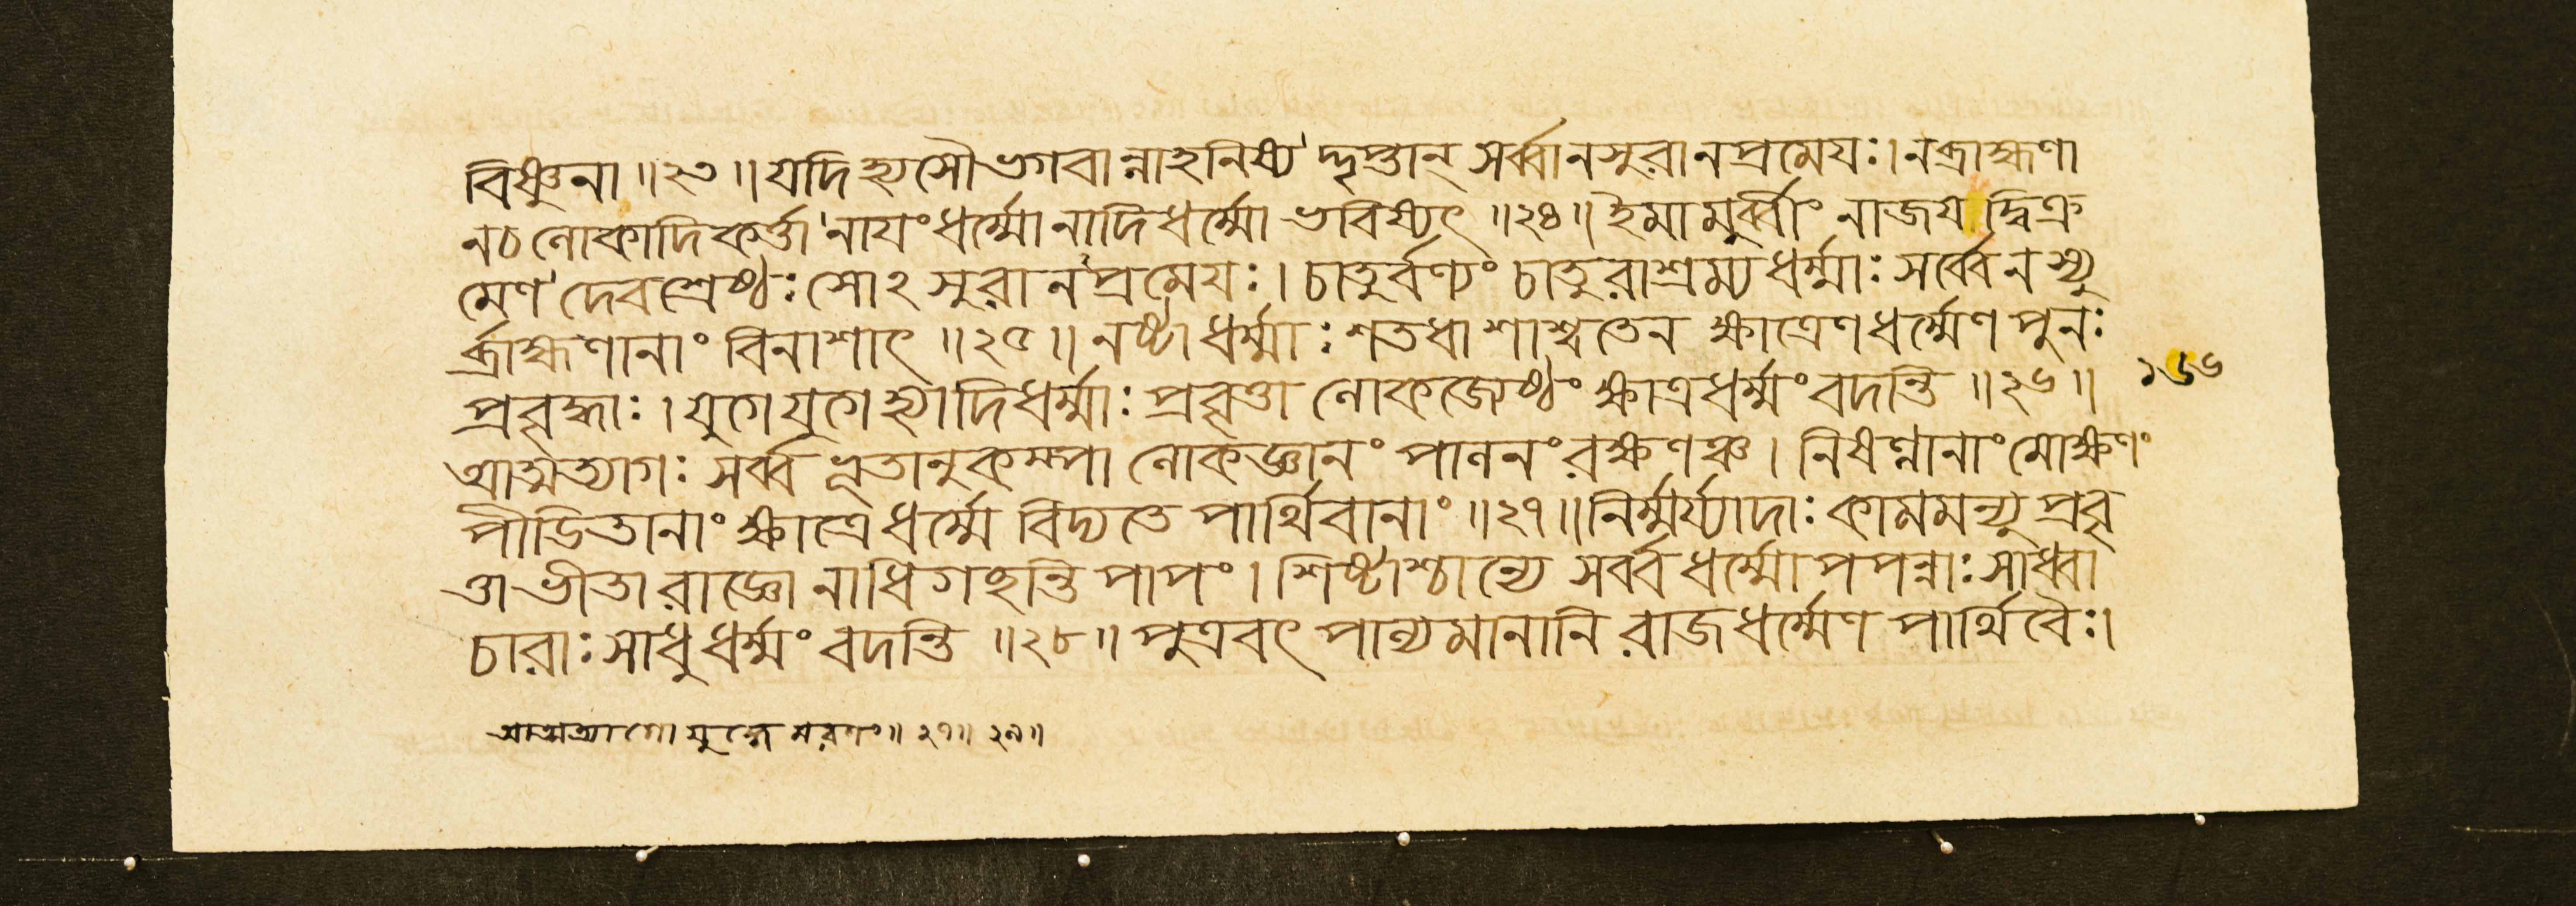 বিষ্ণুনা ॥২৩॥ যদি হ্যসৌ ভগবান্নাহনিষ্য দ্দৃপ্তান্ সর্ব্বানসুরানপ্রমেযঃ। নব্রাহ্মণা
নচ লোকাদিকর্ত্তা নাযংধর্ম্মো নাদিধর্ম্মো ভবিষ্যৎ ॥২৪॥ ইমামুর্ব্বীং নাজয দ্বিক্র
মেণ দেবশ্রেষ্ঠঃ সোঽসুরানপ্রমেযঃ। চাতুর্বণ্যং চাতুরাশ্রম্যধর্ম্মাঃ সর্ব্বে ন স্যু
র্ব্রাহ্মণানাং বিনাশাৎ ॥২৫॥ নষ্টা ধর্ম্মাঃ শতধা শাশ্বতেন ক্ষাত্রেণ ধর্ম্মেণ পুনঃ
প্রবৃহ্মাঃ। যুগে যুগে হ্যাদিধর্ম্মাঃ প্রবৃত্তা লোকজ্যেষ্ঠং ক্ষাত্রধর্ম্মং বদন্তি ॥২৬॥
১৬৬
আত্মত্যাগঃ সর্ব্বভূতানুকম্পা লোকজ্ঞানং পালনং রক্ষণঞ্চ। নিষণ্ণানাং মোক্ষণং
পীডিতানাং ক্ষাত্রে ধর্ম্মে বিদ্যতে পার্থিবানাং ॥২৭॥ নির্ম্মর্য্যাদাঃ কামমন্যু প্রবৃ
ত্তা ভীতা রাজ্ঞো নাধিগচ্ছন্তি পাপং। শিষ্টাশ্চান্যে সর্ব্বধর্ম্মোপপন্নাঃ সাধ্বা
চারাঃ সাধুধর্ম্মং বদন্তি ॥২৮॥ পুত্রবৎ পাল্যমানানি রাজধর্ম্মেণ পার্থিবৈঃ।
আত্মত্যাগো যুদ্ধে মরণং॥ ২৭॥ ২৯॥